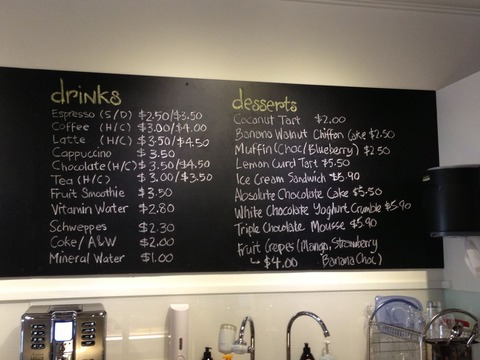 drinks
Espresso (S/D) $2.50/$3.50
Coffee (H/C) $3.00/$4.00
Latte (H/C) $3.50/$4.50
Cappuccino $3.50
Chocolate (H/C) $3.50/$4.50
Tea (H/C) $3.00/$3.50
Fruit Smoothie $3.50
Vitamin Water $2.80
Schweppes $2.30
Coke/A&W $2.00
Mineral Water $1.00
desserts
Coconut Tart $2.00
Banana Walnut Chiffon Cake $2.50
Muffin (Choc/Blueberry) $2.50
Lemon Curd Tart $5.50
Ice Cream Sandwich $5.90
Absolute Chocolate Cake $5.50
White Chocolate Yoghurt Crumble $5.90
Triple Chocolate Mousse $5.90
Fruit Crepes (Mango, Strawberry
↳ $4.00 Banana Choc)